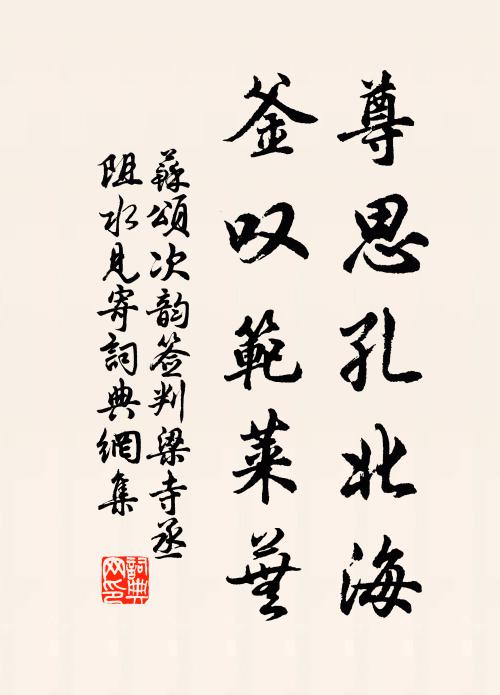 尊思孔北海
釜叹範莱蕪
蘇頌次韵签判梁寺丞
阻水見寄詞典網集
詞典网印